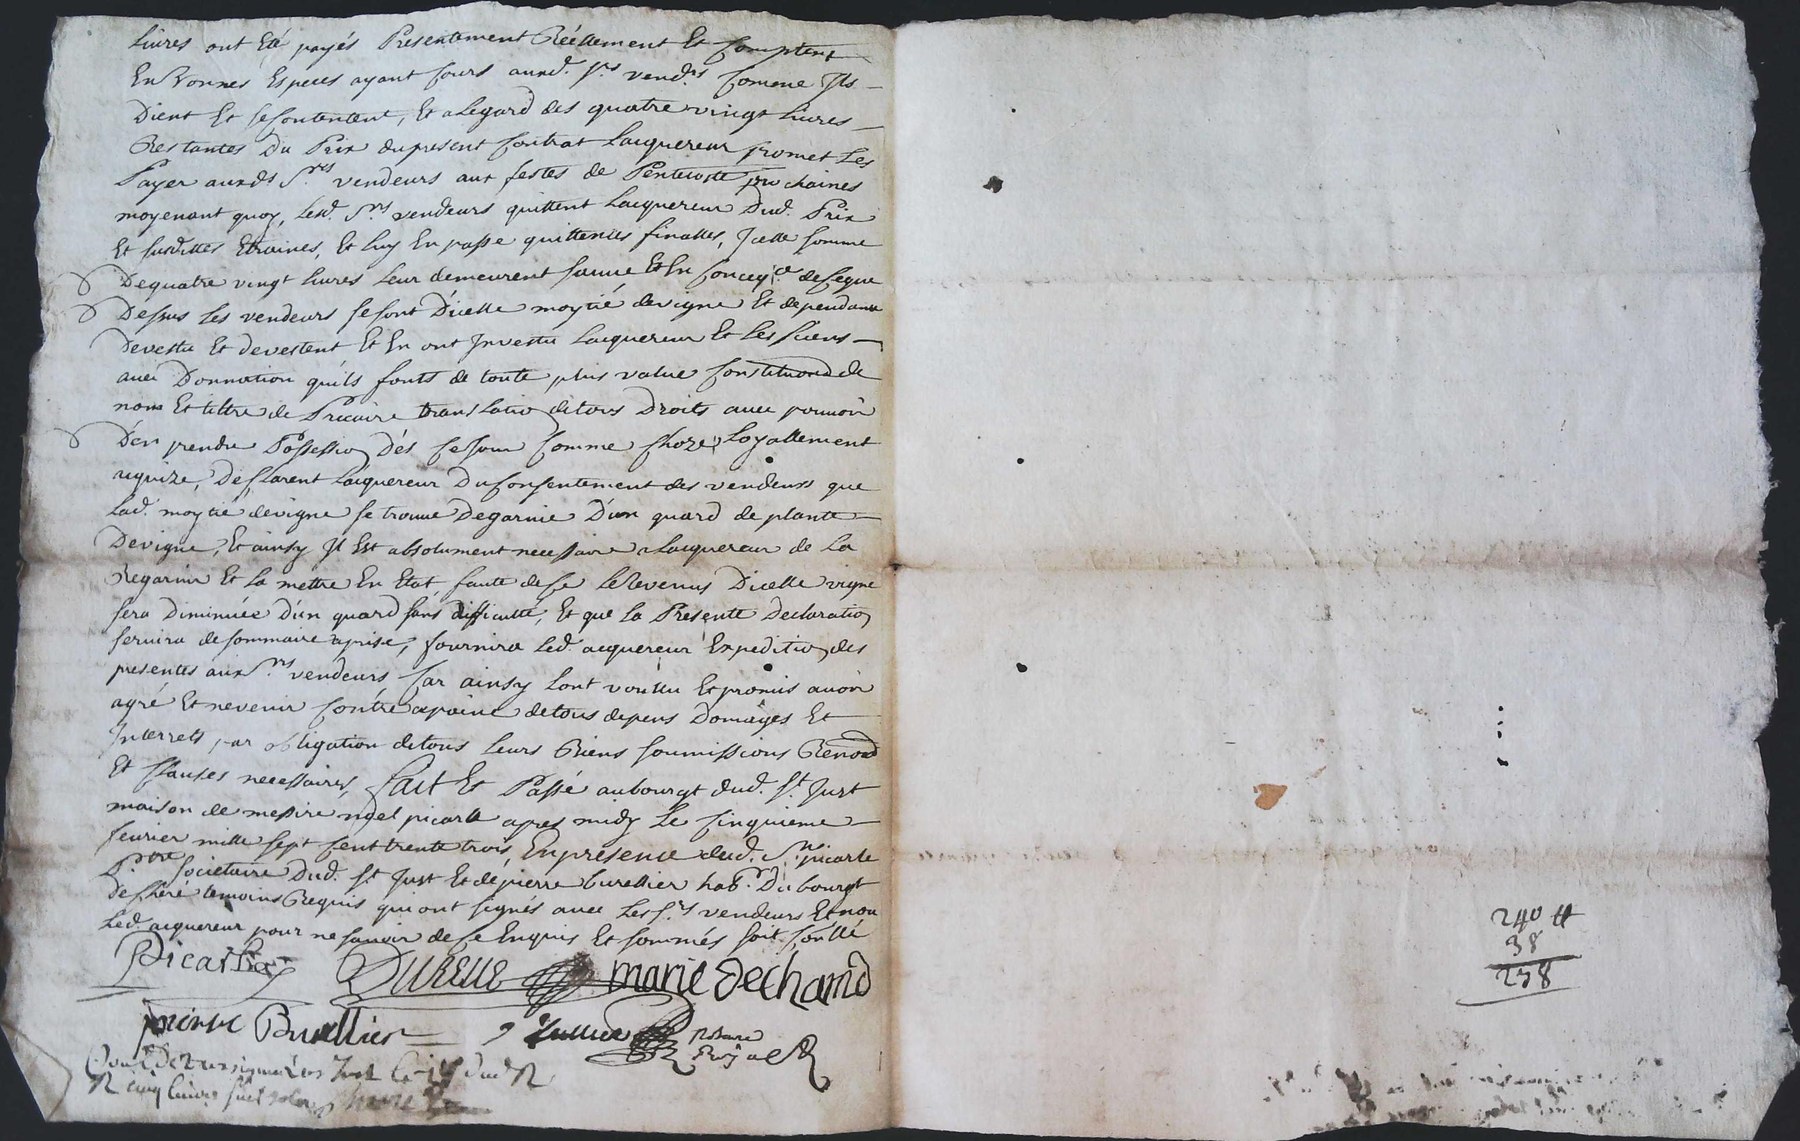 livres ont Eté payés Presentement Réellement Et Comptent
En bonnes Especes ayant Cours auxd. srs vendrs Comme Ils
Dient Et se Contentent, Et a Legard des quatre vingt Livres
Restantes Du Prix du present Contrat Lacquereur promet Les
Payer auxds Srs vendeurs aux festes de Pentecoste prochaines
moyenant quoy, Lesd. Srs vendeurs quittent Lacquereur Dud. Prix
Et susdittes Etraines, Et luy En passe quittences finalles, Icelle somme
De quatre vingt livres Leur demeurent sauve Et En de Ceque
Dessus Les vendeurs se sont D'icelle moytié de vigne Et dependance
Devestu Et devestent Et En ont Investu Lacquereur Et Les siens
avec Donnation quils fonts de toute plus value Constitution de
nom Et tiltre de Precaire translatio de tous Droits avec pouvoir
D'en prendre Possessio Dés Ce Jour Comme Choze Loyallement
aquize, Desclarent Lacquereur Du Consentement des vendeurs que
Lad. moytié de vigne se trouve Degarnie D'un quard de plante
De vigne, Et ainsy Il Est absolument necessaire a Lacquereur de La
Regarnir Et La mettre En Etat faute de Ce le Revenus D'icelle vigne
sera Diminuée D'un quard sans difficulté, Et que La Presente Declaratio
servira de sommaire aprise, fournira Led. acquereur Expeditio des
presentes aux Srs vendeurs Car ainsy Lont voullu Et promis avoir
agré Et ne venir Contre a peine de tous depens Domages Et
Interrets par obligation de tous Leurs Biens soumissions Renond
Et Clauses necessaires, fait Et Passé au bourgt dud. St Just
maison de messire noel picarle apres midy Le Cinquieme
fevrier mille sept Cent trente trois, En presence dud. Sr picarle
Ptre Societaire Dud. St Just Et de pierre burellier hab. Du bourgt
de Chéré temoins Requis qui ont signés avec Les srs vendeurs Et non
Led. acquereur pour ne savoir de Ce Enquis Et sommés soit Conllé
Picarle DURELLE marie Dechamd
pierre Burellier Jullien
Just Le dud
cinq livres
240 ₶
38
238